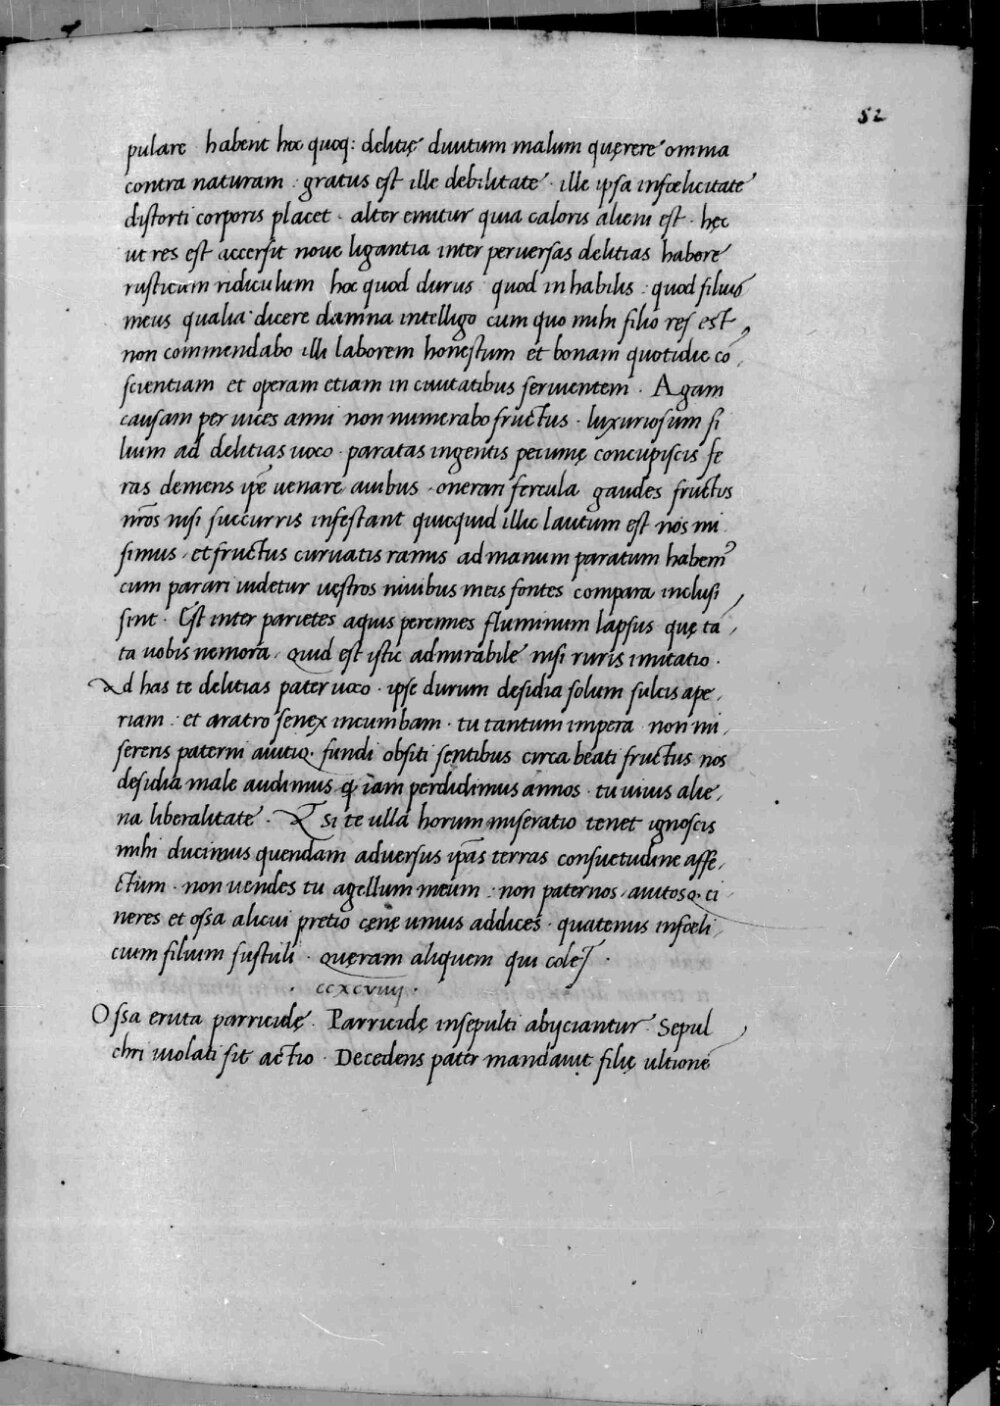 52
pulare habent hoc quoq: delitię diuitum malum quęrere omnia
contra naturam . gratus est ille debilitate . ille ipsa infœlicitate
distorti corporis placet . alter emitur quia caloris alieni est . hęc
ut res est accersit noue ligantia inter peruersas delitias habere
rusticum ridiculum hoc quod durus quod inhabilis . quod filius
meus qualia dicere damna intelligo cum quo mihi filio res est
non commendabo illi laborem honestum et bonam quotidie cō,
scientiam et operam etiam in ciuitatibus seruientem . Agam
causam per uices anni non numerabo fructus . luxuriosum fi
lium ad delitias uoco . paratas ingentis pecunię concupiscis fe
ras demens ip̄e uenare auibus . onerari fercula gaudes fructus
nr̄os nisi succurris infestant quicquid illic lautum est nos mi
simus . et fructus curuatis ramis ad manum paratum habem9
cum parari uidetur uęstros niuibus meis fontes compara inclusi
sint . Est inter parietes aquis perennes fluminum lapsus quę tā,
ta uobis nemora . Quid est istic admirabile nisi ruris imitatio .
Ad has te delitias pater uoco . ipse durum desidia solum sulcis ape,
riam . et aratro senex incumbam . tu tantum impera non mi,
sereris paterni auitiq. fundi obsiti sentibus circa beati fructus nos
desidia male audimus q iam perdidimus annos . tu uiuis alie,
na liberalitate . Et si te ulla horum miseratio tenet ignoscis
mihi ducimus quendam aduersus ip̄as terras consuetudine affe,
ctum . non uendes tu agellum meum . non paternos auitosq. ci
neres et ossa alicui pretio cęnę unius addices . quatenus infœli
ciem filium sustuli . quęram aliquem qui colet .
. ccxcviiij .
Ossa eruta parricidę . Parricidę insepulti abijciantur . Sepul
chri uiolati sit actio . Decedens pater mandauit filię ultionē